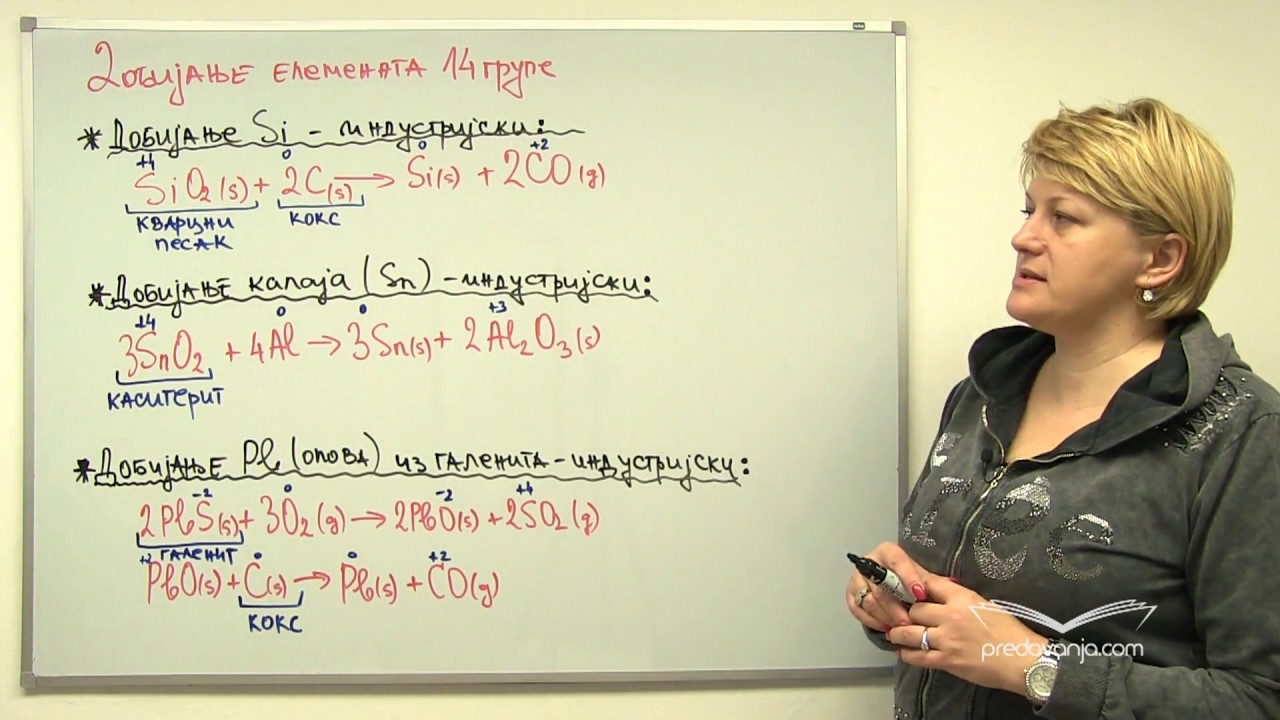 Добијање елемената 14 групе
* Добијање Si - индустријски:
+4 0 0 +2
SiO₂(s) + 2C(s) → Si(s) + 2CO(g)
кварцни кокс
песак
* Добијање калаја (Sn) - индустријски:
+4 0 0 +3
3SnO₂ + 4Al → 3Sn(s) + 2Al₂O₃(s)
каситерит
* Добијање Pb (олова) из галенита - индустријски:
-2 0 -2 +4
2PbS(s) + 3O₂(g) → 2PbO(s) + 2SO₂(g)
галенит
+2 0 0 +2
PbO(s) + C(s) → Pb(s) + CO(g)
кокс
ree
predavanja.com